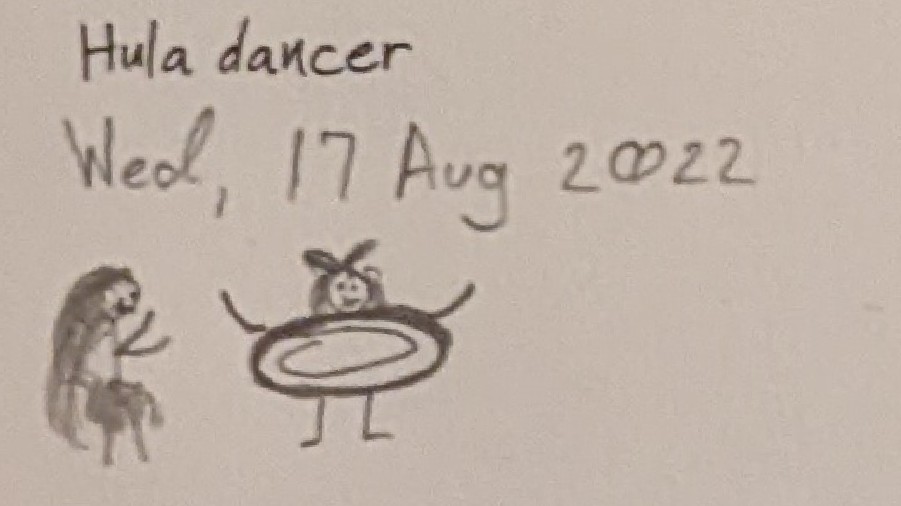 Hula dancer
Wed, 17 Aug 2022